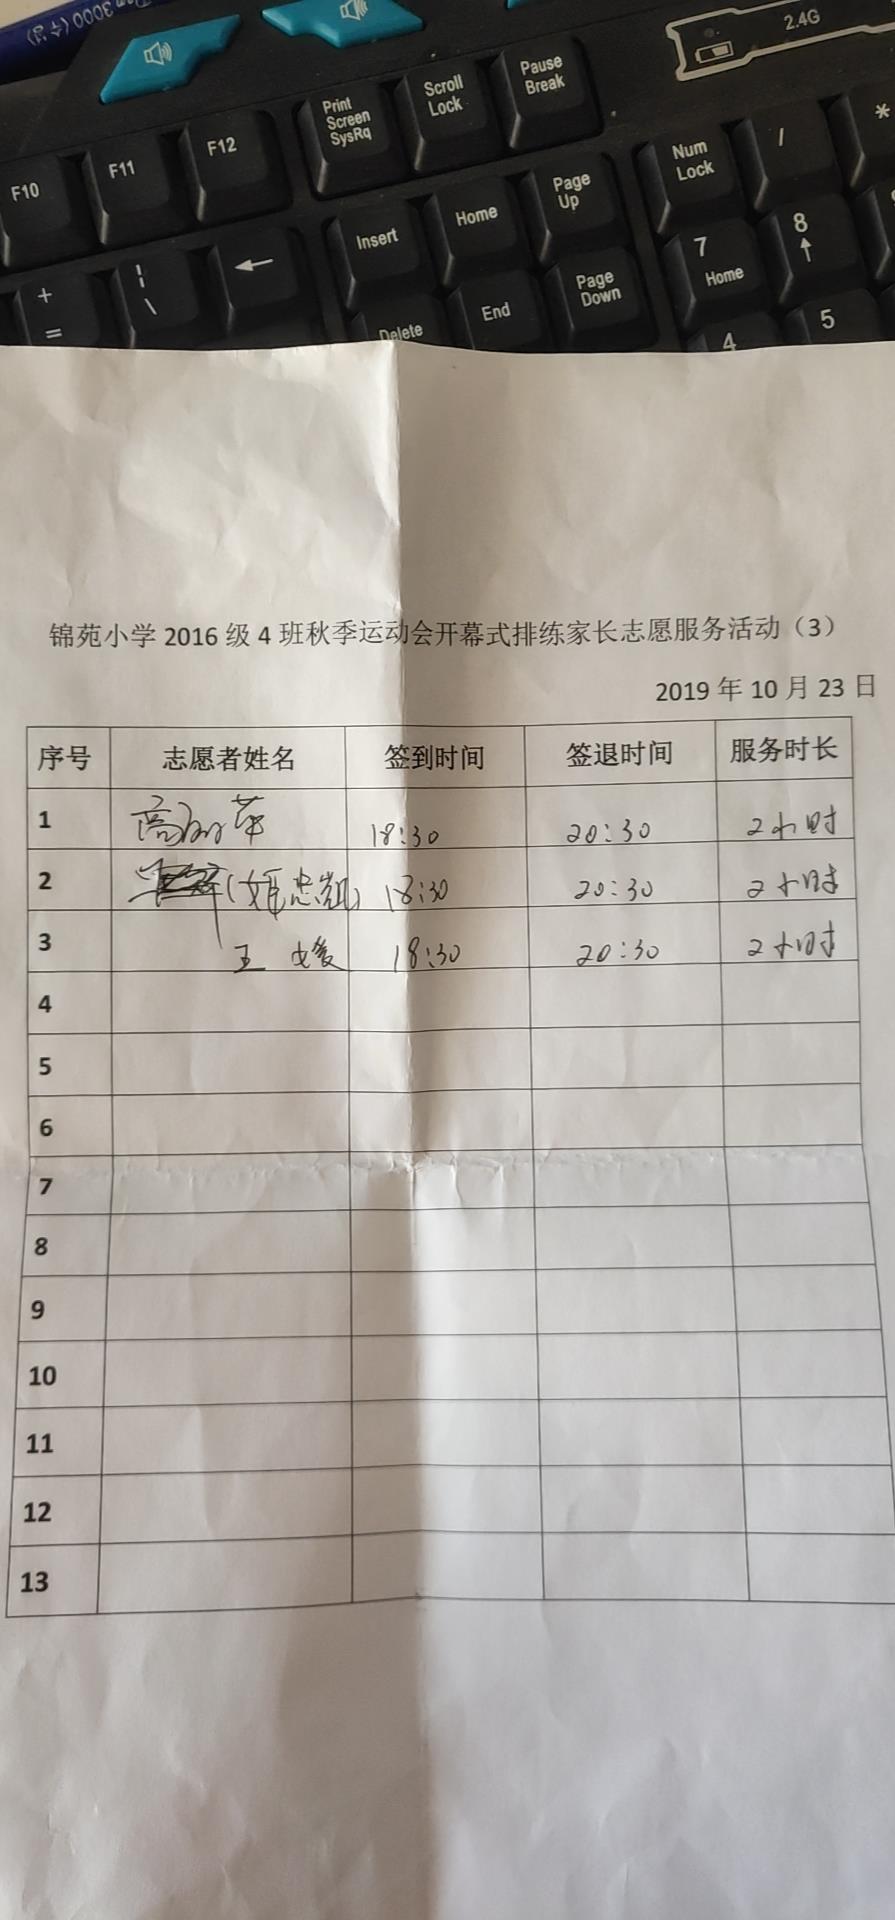 3000
2.4G
F10
F11
F12
Print Screen SysRq
Scroll Lock
Pause Break
Num Lock
/
*
Insert
Home
Page Up
7 Home
8
+ =
\
Delete
End
Page Down
4
5
锦苑小学2016级4班秋季运动会开幕式排练家长志愿服务活动（3）
2019年10月23日
序号 志愿者姓名 签到时间 签退时间 服务时长
1 18:30 20:30 2小时
2 (姬忠凯) 18:30 20:30 2小时
3 王媛 18:30 20:30 2小时
4
5
6
7
8
9
10
11
12
13